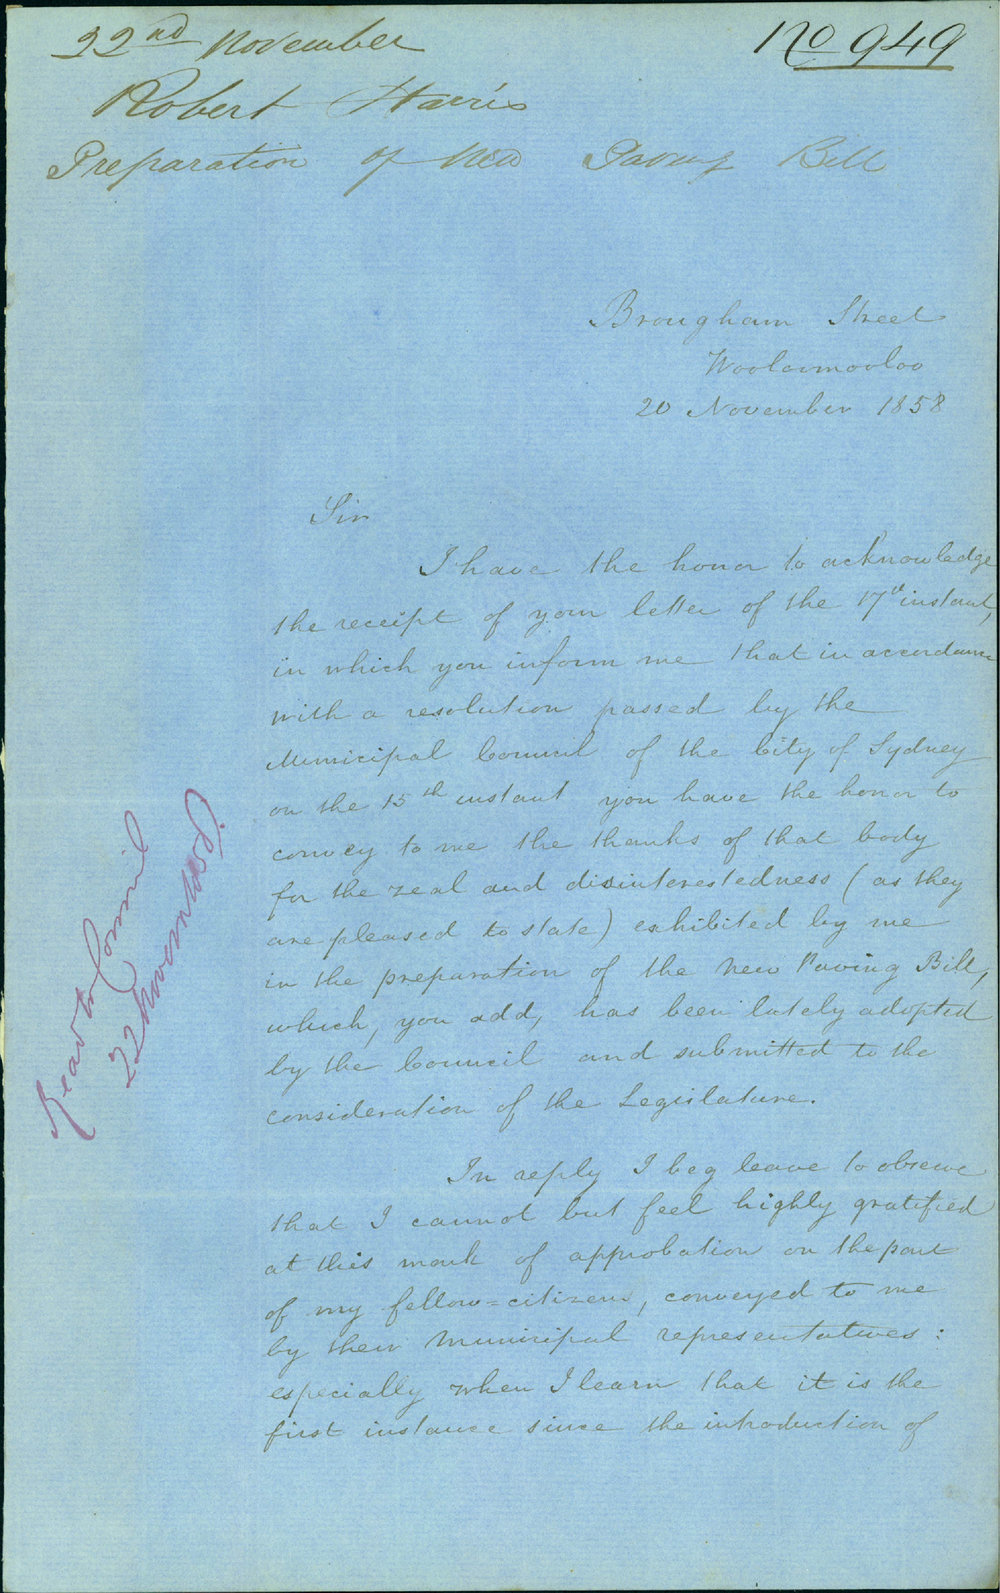 22nd November
No 949
Robert Harris
Preparation of New Paving Bill
Brougham Street
Wooloomooloo
20 November 1858
Sir
I have the honor to acknowledge
the receipt of your letter of the 17th instant,
in which you inform me that in accordance
with a resolution passed by the
Municipal Council of the City of Sydney
on the 15th instant you have the honor to
convey to me the thanks of that body
for the zeal and disinterestedness (as they
are pleased to state) exhibited by me
in the preparation of the new Paving Bill,
which, you add, has been lately adopted
by the Council and submitted to the
consideration of the Legislature.
In reply I beg leave to observe
that I cannot but feel highly gratified
at this mark of approbation on the part
of my fellow=citizens, conveyed to me
by their Municipal representatives:
especially when I learn that it is the
first instance since the introduction of
Read to Council
22 November